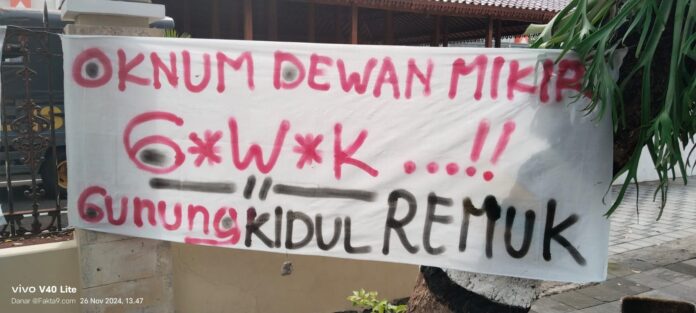 OKNUM DEWAN MIKIR
G*W*K ...!!
GUNUNG KIDUL REMUK
vivo V40 Lite
Danar @Fakta9.com 26 Nov 2024, 13.47